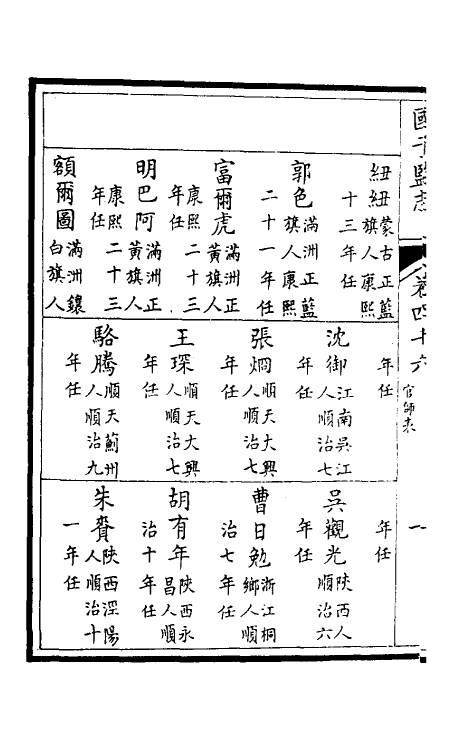 國子監志
卷四十六 官師表 一
紐紐蒙古正藍旗人康熙
十三年任
郭色滿洲正藍旗人康熙
二十一年任
富爾虎滿洲正黃旗人
康熙二十三年任
明巴阿滿洲正黃旗人
康熙二十三年任
額爾圖滿洲鑲白旗人
年任
沈御江南吳江人順治七
年任
張烱順天大興人順治七
年任
王琛順天大興人順治七
年任
駱騰順天薊州人順治九
年任
年任
吳觀光陝西人順治六
年任
曹日勉浙江桐鄉人順
治七年任
胡有年陝西永昌人順
治十年任
朱賡陝西涇陽人順治十
一年任